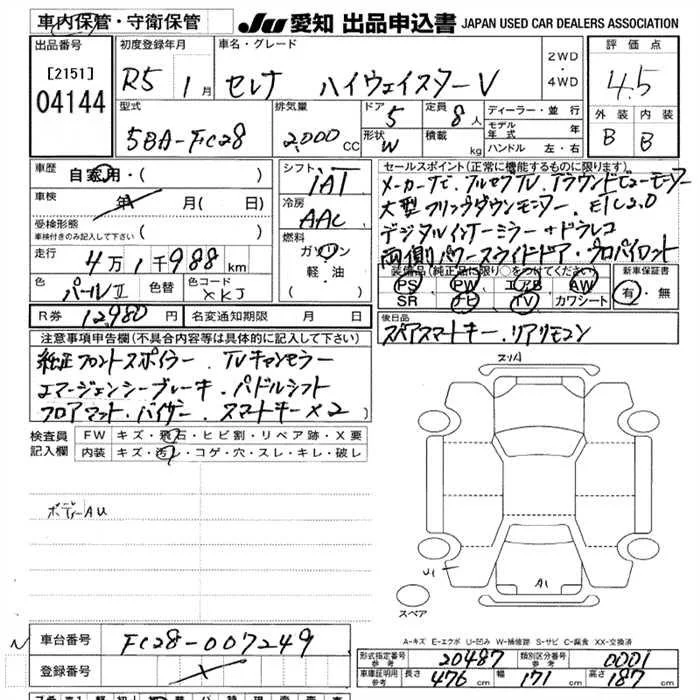 車内保管・守衛保管
JU 愛知 出品申込書 JAPAN USED CAR DEALERS ASSOCIATION
出品番号 初度登録年月 車名・グレード 評価点
[2151]
04144
R5 1月 セレナ ハイウェイスターV 2WD・4WD 4.5
型式 排気量 ドア 5 定員 8人 ディーラー・並行 外装 内装
5BA-FC28 2,000CC 形状 W 積載 kg モデル年式 年 B B
ハンドル 左・右
車歴 自家用・( )
車検 年 月( 日)
受検形態
車検付きのみ記入して下さい( )
走行 4万1千988km
色 パールII 色替 色コード XKJ
R券 12,980円 名変通知期限 月 日
シフト IAT
冷房 AAC
燃料 ガソリン・軽油( )
セールスポイント(正常に機能するものに限ります)
メーカーナビ.フルセグTV.アラウンドビューモニター
大型フリップダウンモニター.ETC2.0
デジタルインナーミラー+ドラレコ
両側パワースライドドア.プロパイロット
装備品(純正品に限り○をつけてください) 新車保証書
PS PW エアB AW 有・無
SR ナビ TV カワシート
後日品
スペアスマートキー.リアリモコン
注意事項申告欄(不具合内容等は具体的に記入して下さい)
純正フロントスポイラー.TVキャンセラー
エマージェンシーブレーキ.パドルシフト
フロアマット.バイザー.スマートキー×2
検査員記入欄 FW キズ・飛石・ヒビ割・リペア跡・X要
内装 キズ・汚レ・コゲ・穴・スレ・キレ・破レ
ボデーAU
U1
A1
スペア
A-キズ E-エクボ U-凹み W-補修跡 S-サビ C-腐食 XX-交換済
車台番号 FC28-007249
登録番号
形式指定番号 参考 20487 類別区分番号 参考 0001
車庫証明用 参考 長さ 476cm 幅 171cm 高さ 187cm